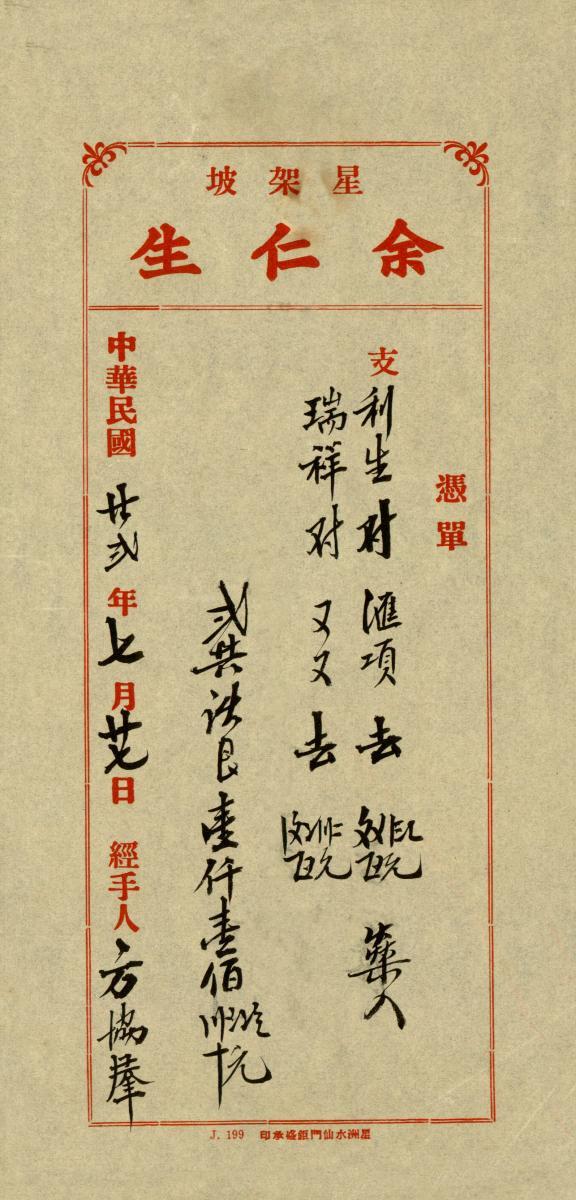 星架坡
余仁生
憑單
支
利生对 滙項去 藥入
瑞祥对 又又去
弍共 壹仟壹佰
中華民國廿弍年七月廿七日 經手人 方協羣
J. 199 星洲水仙門鉅盛承印